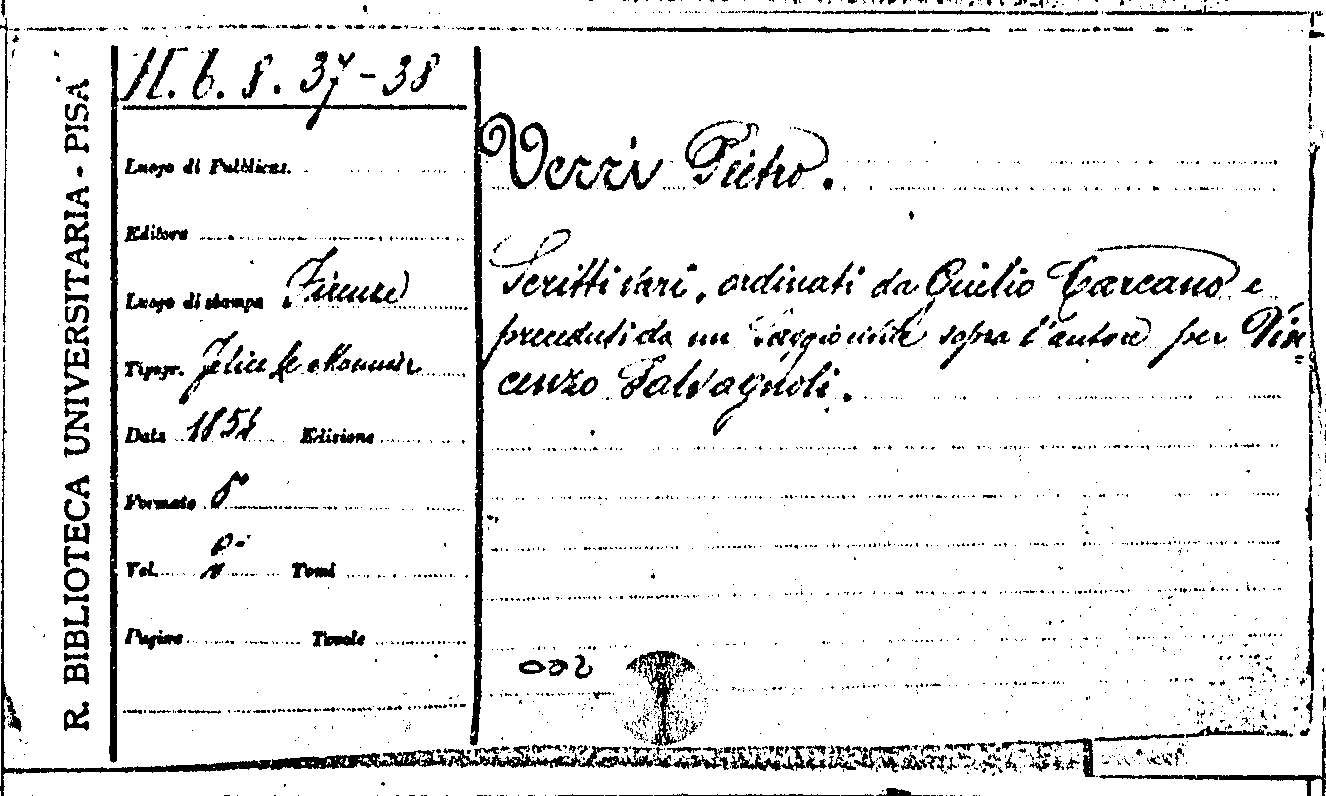 R. BIBLIOTECA UNIVERSITARIA - PISA
H. b. 8. 37-38
Luogo di Pubblicaz.
Editore
Luogo di stampa Firenze
Tipogr. Felice Le Monnier
Data 1854 Edizione
Formato 8º
Vol. 2 Tomi
Pagine Tavole
Verri Pietro.
Scritti vari, ordinati da Giulio Carcano e
preceduti da un Saggio civile sopra l'autore per Vin=
cenzo Salvagnoli.
002